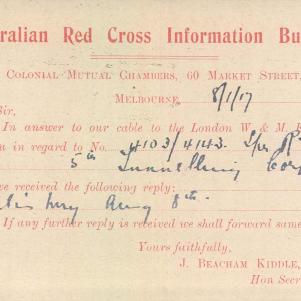 ralian Red Cross Information Bu
Colonial Mutual Chambers, 60 Market Street,
Melbourne, 8/1/17
Sir,
In answer to our cable to the London W & M
n in regard to No. 4103/4143. Spr
5th Tunnelling Coy
we received the following reply:
Aug 8th.
If any further reply is received we shall forward same
Yours faithfully,
J. BEACHAM KIDDLE,
Hon Secr